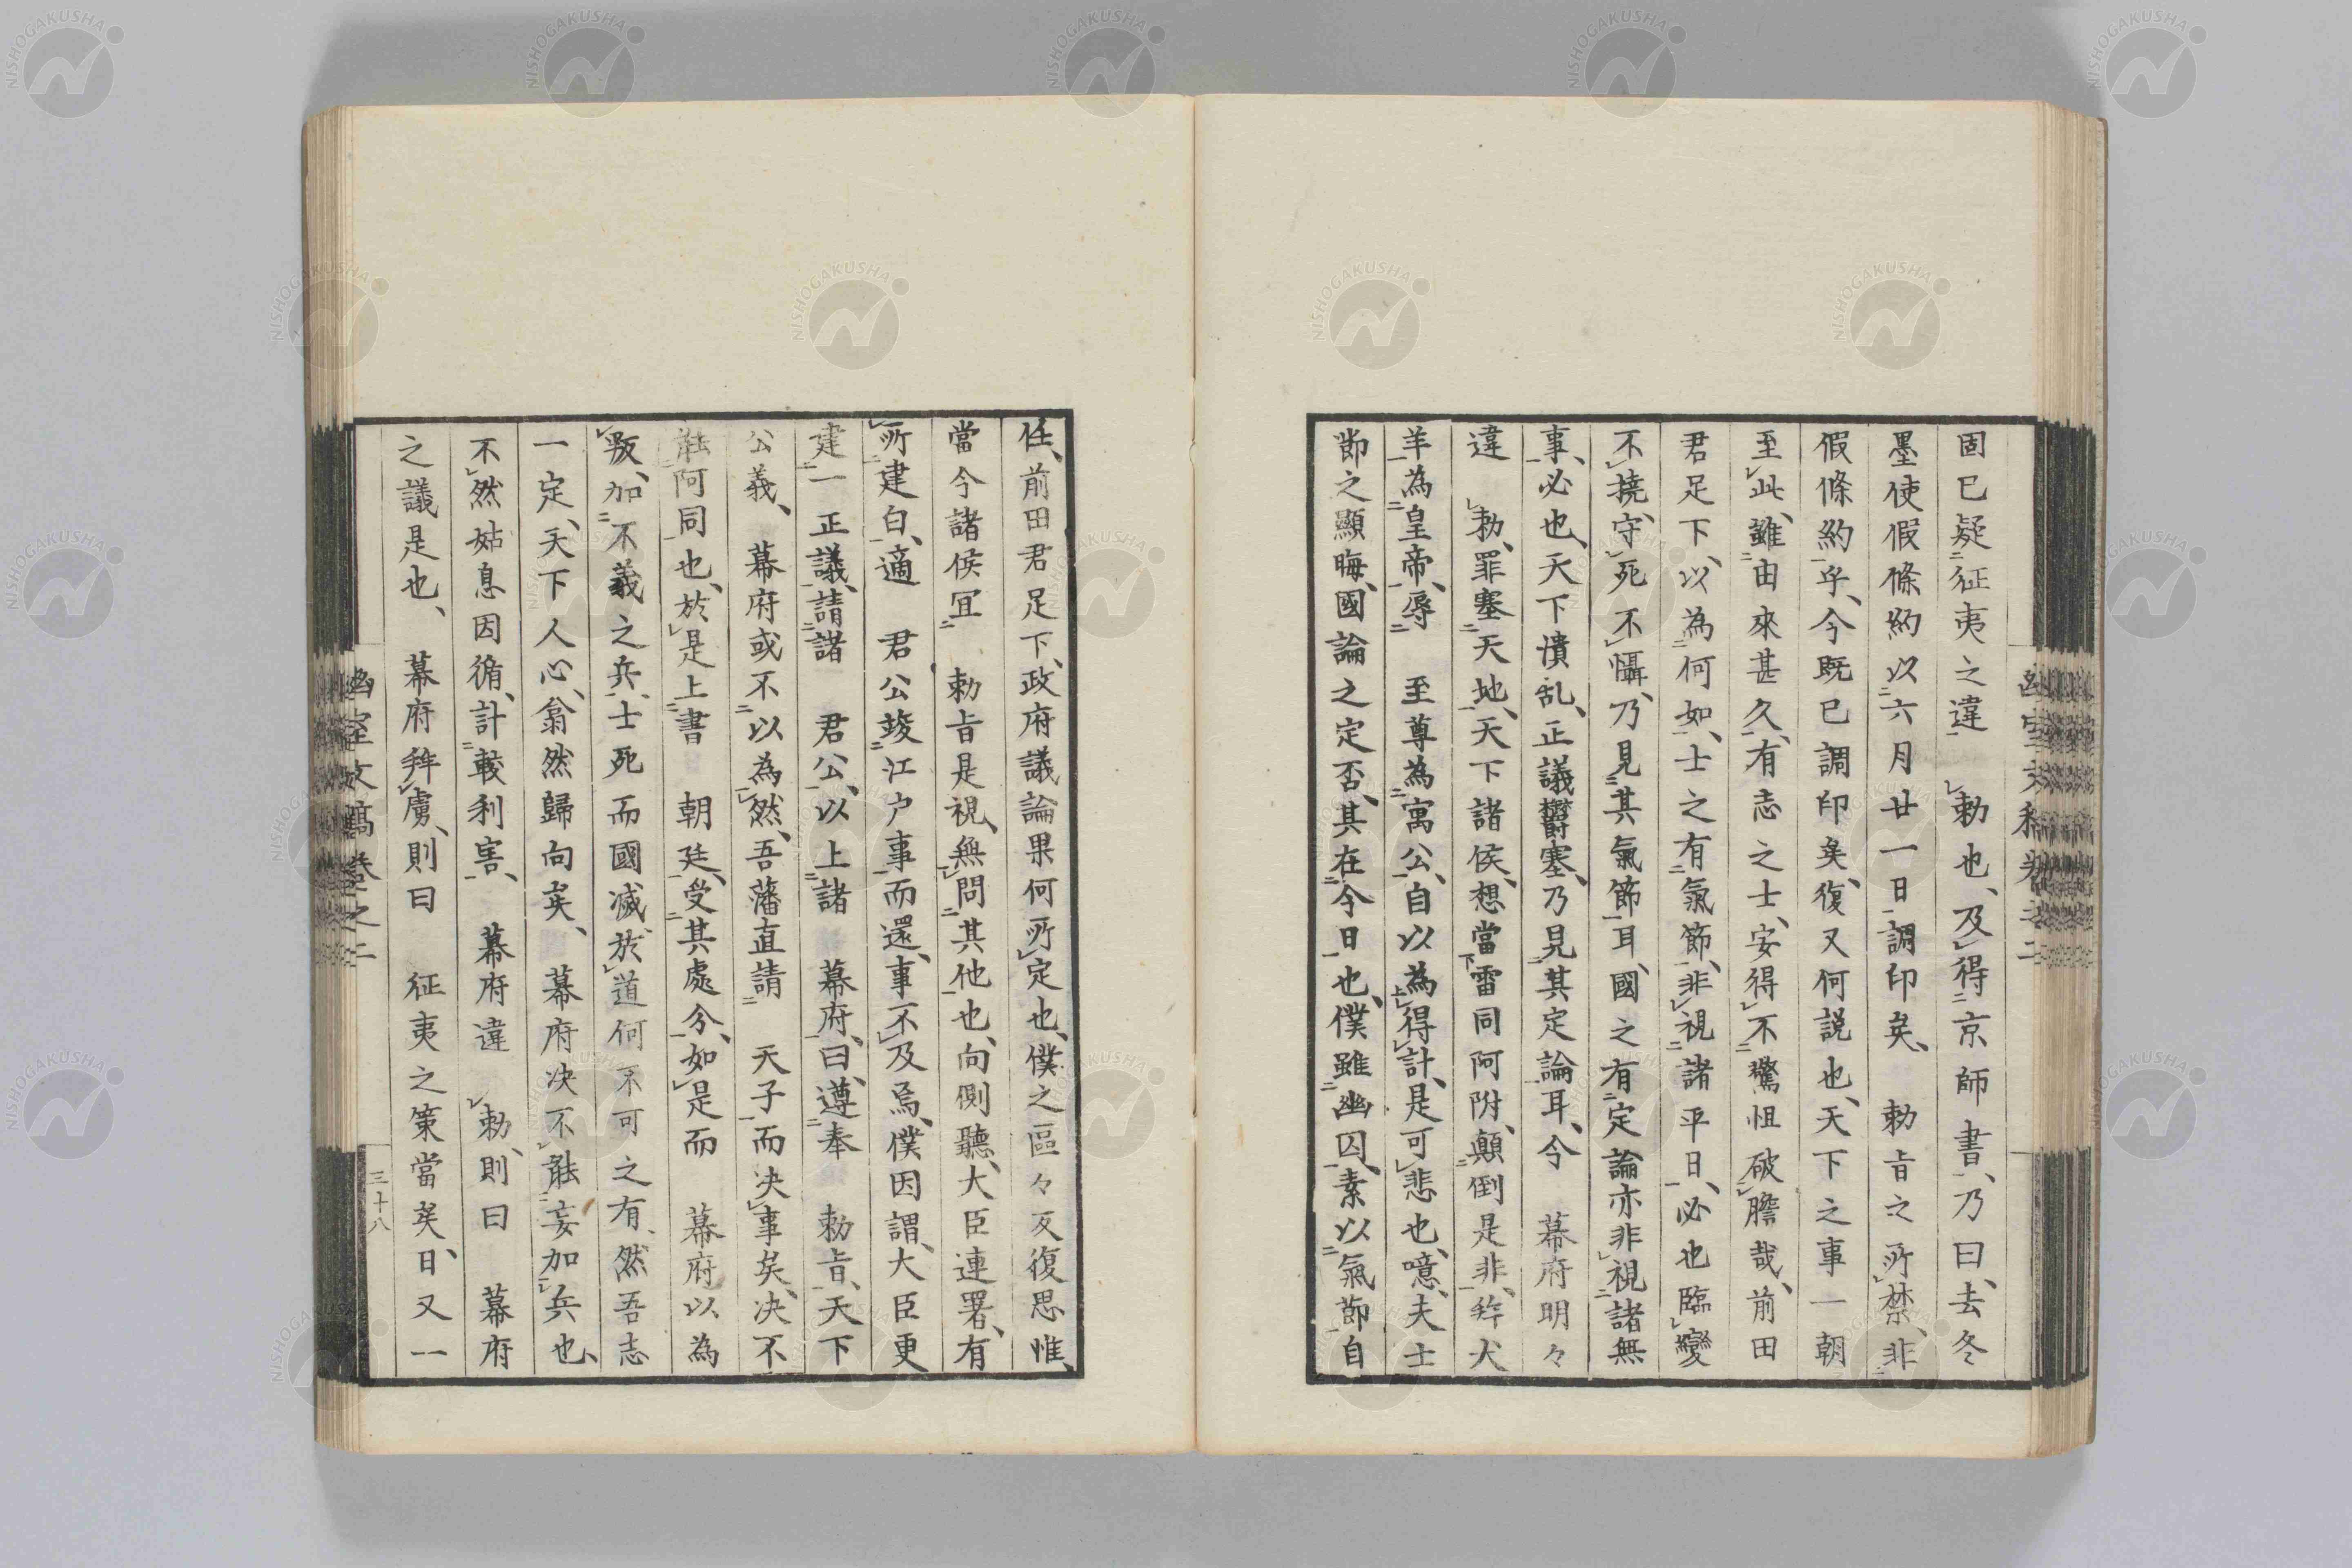 固已疑征夷之違　勅也、及得京師書、乃曰、去冬
墨使假條約以六月廿一日調印矣、　勅旨之所禁、非
假條約乎、今既已調印矣、復又何説也、天下之事一朝
至此、雖由來甚久、有志之士、安得不驚怛破膽哉、前田
君足下、以為何如、士之有氣節、非視諸平日、必也臨變
不撓、守死不懾、乃見其氣節耳、國之有定論亦非視諸無
事、必也、天下潰乱、正議欝塞、乃見其定論耳、今　幕府明々
違　勅、罪塞天地、天下諸侯、想當雷同阿附、顛倒是非、犬
羊為皇帝、辱　至尊為寓公、自以為得計、是可悲也、噫、夫士
節之顯晦、國論之定否、其在今日也、僕雖幽囚、素以氣節自
任、前田君足下、政府議論果何所定也、僕之區々反復思惟、
當今諸侯宜　勅旨是視、無問其他也、向側聽、大臣連署、有
所建白、適　君公竣江户事而還、事不及焉、僕因謂、大臣更
建一正議、請諸　君公、以上諸　幕府、曰、遵奉　勅旨、天下
公義、　幕府或不以為然、吾藩直請　天子而决事矣、决不
能阿同也、於是上書　朝廷、受其處分、如是而　幕府以為
叛、加不義之兵、士死而國滅、於道何不可之有、然吾志
一定、天下人心、翕然歸向矣、　幕府决不能妄加兵也、
不然姑息因循、計較利害、　幕府違　勅、則曰　幕府
之議是也、　幕府拜虜、則曰　征夷之策當矣、日、又一
幽室文稿卷之二
三十八
NISHOGAKUSHA